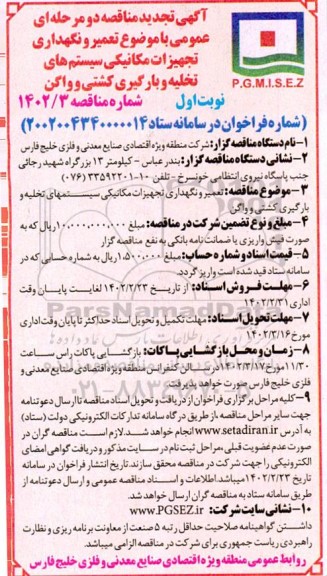 آگهی تجدید مناقصه دو مرحله ای
عمومی با موضوع تعمیر و نگهداری
تجهیزات مکانیکی سیستم های
تخلیه و بارگیری کشتی و واگن
P.G.M.I.S.E.Z
نوبت اول
شماره مناقصه ۱۴۰۲/۳
(شماره فراخوان در سامانه ستاد ۲۰۰۲۰۰۴۳۴۰۰۰۰۰۱۴)
۱-نام دستگاه مناقصه گزار: شرکت منطقه ویژه اقتصادی صنایع معدنی و فلزی خلیج فارس
۲-نشانی دستگاه مناقصه گزار: بندرعباس - کیلومتر ۱۳ بزرگراه شهید رجائی
جنب پاسگاه نیروی انتظامی خونسرخ - تلفن ۱۰-۳۳۵۹۲۲۰۱ (۰۷۶)
۳-موضوع مناقصه: تعمیر و نگهداری تجهیزات مکانیکی سیستمهای تخلیه و
بارگیری کشتی و واگن
۴-مبلغ و نوع تضمین شرکت در مناقصه: مبلغ ۱۰,۰۰۰,۰۰۰,۰۰۰ ریال که به
صورت فیش واریزی یا ضمانت نامه بانکی به نفع مناقصه گزار
۵-قیمت اسناد و شماره حساب: مبلغ ۱۵۰۰۰۰۰ ریال به شماره حسابی که در
سامانه ستاد قید شده است واریز گردد.
۶-مهلت فروش اسناد: از تاریخ ۱۴۰۲/۲/۲۳ لغایت پایان وقت
اداری ۱۴۰۲/۲/۳۱
۷-مهلت تحویل اسناد: مهلت تکمیل و تحویل اسناد حداکثر تا پایان وقت اداری
مورخ ۱۴۰۲/۳/۱۶
۸-زمان و محل بازگشایی پاکات: بازگشایی پاکات راس ساعت
۱۱/۳۰ مورخ ۱۴۰۲/۳/۱۷ در سالن کنفرانس منطقه ویژه اقتصادی صنایع معدنی و
فلزی خلیج فارس صورت خواهد پذیرفت.
۹-کلیه مراحل برگزاری فراخوان از دریافت و تحویل اسناد مناقصه تا ارسال دعوتنامه
جهت سایر مراحل مناقصه از طریق درگاه سامانه تدارکات الکترونیکی دولت (ستاد)
به آدرس www.setadiran.ir انجام خواهد شد. لازم است مناقصه گران در
صورت عدم عضویت قبلی، مراحل ثبت نام در سایت مذکور و دریافت گواهی امضای
الکترونیکی را جهت شرکت در مناقصه محقق سازند. تاریخ انتشار فراخوان در سامانه
تاریخ ۱۴۰۲/۲/۲۳ میباشد. اطلاعات و اسناد مناقصه عمومی و ارسال دعوتنامه از
طریق سامانه ستاد به مناقصه گران ارسال خواهد شد.
۱۰-نشانی سایت شرکت: www.PGSEZ.ir
داشتن گواهینامه صلاحیت حداقل رتبه ۵ صنعت از معاونت برنامه ریزی و نظارت
راهبردی ریاست جمهوری برای شرکت در مناقصه الزامی میباشد.
روابط عمومی منطقه ویژه اقتصادی صنایع معدنی و فلزی خلیج فارس